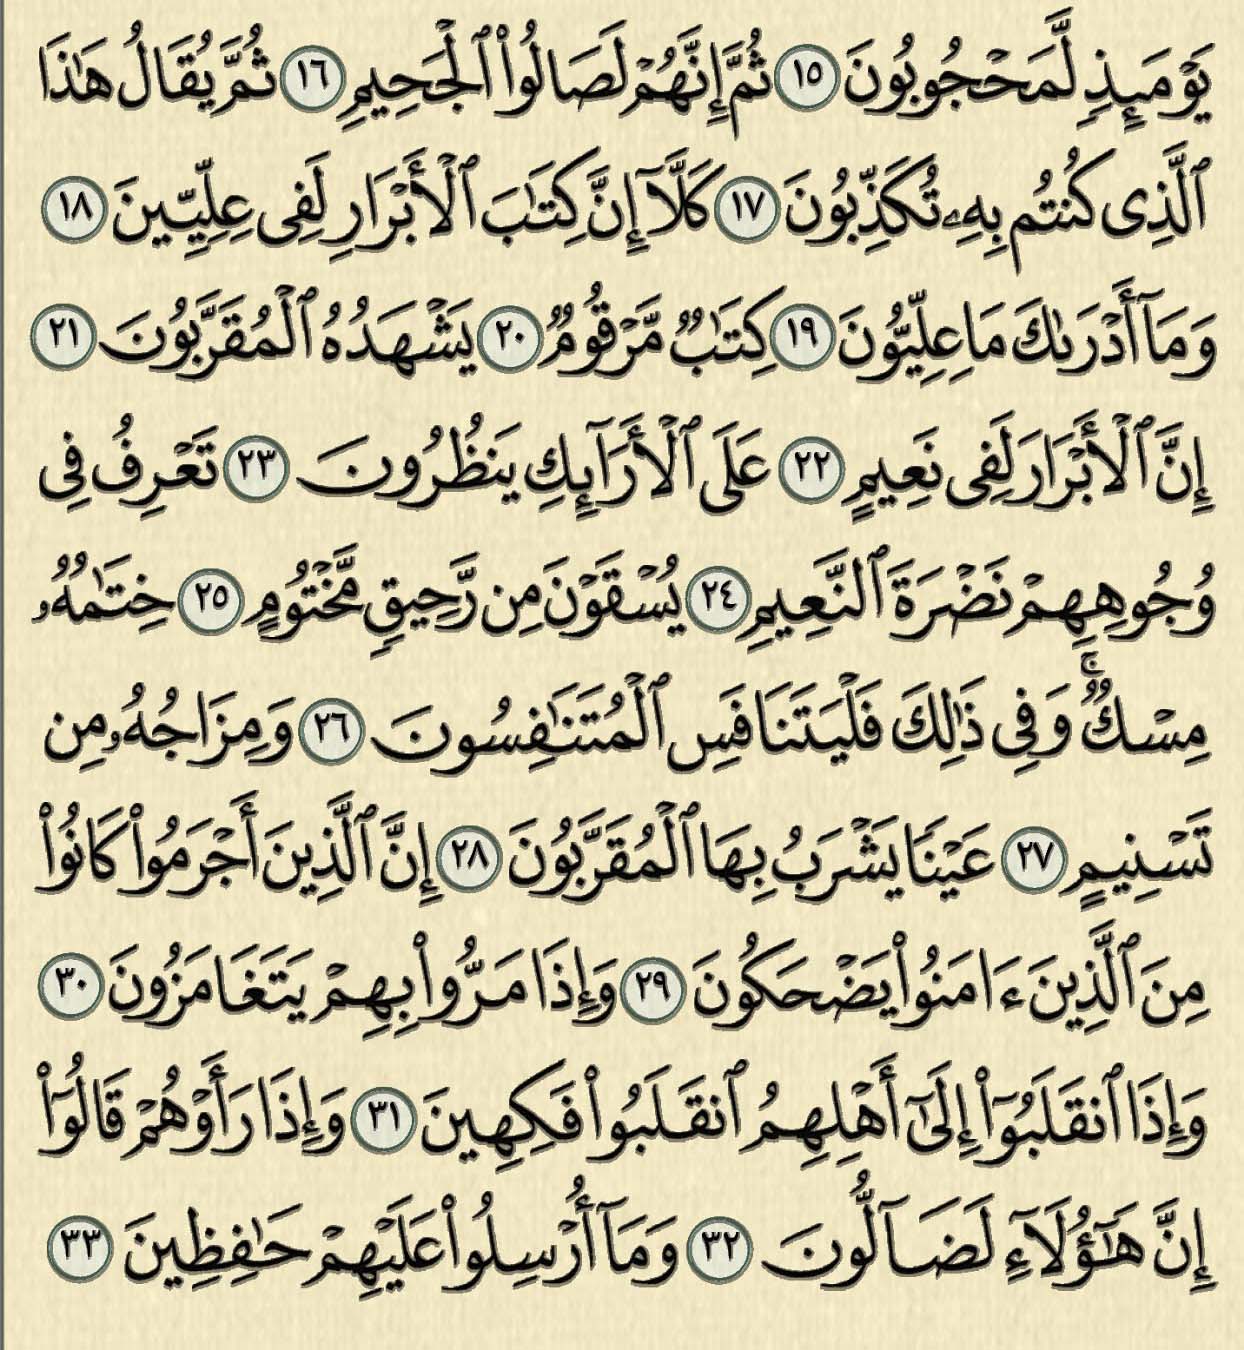 يَوْمَئِذٍ لَّمَحْجُوبُونَ ١٥ ثُمَّ إِنَّهُمْ لَصَالُوا۟ ٱلْجَحِيمِ ١٦ ثُمَّ يُقَالُ هَٰذَا
ٱلَّذِى كُنتُم بِهِۦ تُكَذِّبُونَ ١٧ كَلَّآ إِنَّ كِتَٰبَ ٱلْأَبْرَارِ لَفِى عِلِّيِّينَ ١٨
وَمَآ أَدْرَىٰكَ مَا عِلِّيُّونَ ١٩ كِتَٰبٌ مَّرْقُومٌ ٢٠ يَشْهَدُهُ ٱلْمُقَرَّبُونَ ٢١
إِنَّ ٱلْأَبْرَارَ لَفِى نَعِيمٍ ٢٢ عَلَى ٱلْأَرَآئِكِ يَنظُرُونَ ٢٣ تَعْرِفُ فِى
وُجُوهِهِمْ نَضْرَةَ ٱلنَّعِيمِ ٢٤ يُسْقَوْنَ مِن رَّحِيقٍ مَّخْتُومٍ ٢٥ خِتَٰمُهُۥ
مِسْكٌ ۚ وَفِى ذَٰلِكَ فَلْيَتَنَافَسِ ٱلْمُتَنَٰفِسُونَ ٢٦ وَمِزَاجُهُۥ مِن
تَسْنِيمٍ ٢٧ عَيْنًا يَشْرَبُ بِهَا ٱلْمُقَرَّبُونَ ٢٨ إِنَّ ٱلَّذِينَ أَجْرَمُوا۟ كَانُوا۟
مِنَ ٱلَّذِينَ ءَامَنُوا۟ يَضْحَكُونَ ٢٩ وَإِذَا مَرُّوا۟ بِهِمْ يَتَغَامَزُونَ ٣٠
وَإِذَا ٱنقَلَبُوٓا۟ إِلَىٰٓ أَهْلِهِمُ ٱنقَلَبُوا۟ فَكِهِينَ ٣١ وَإِذَا رَأَوْهُمْ قَالُوٓا۟
إِنَّ هَٰٓؤُلَآءِ لَضَآلُّونَ ٣٢ وَمَآ أُرْسِلُوا۟ عَلَيْهِمْ حَٰفِظِينَ ٣٣